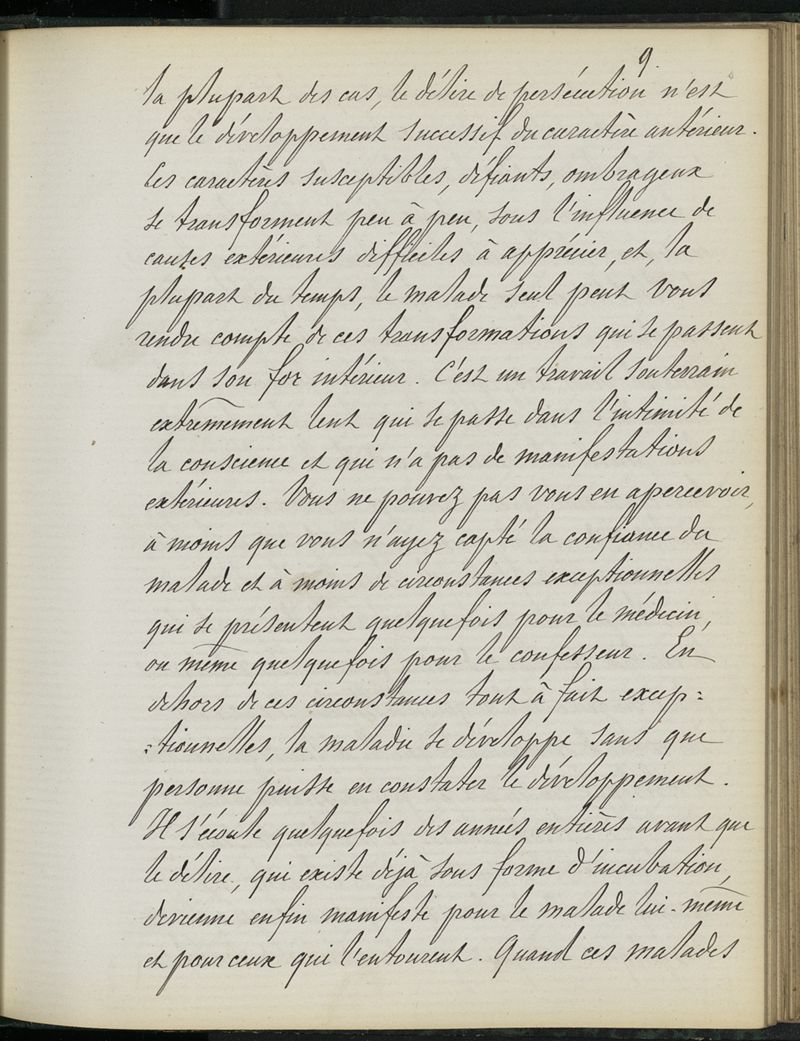 9
la plupart des cas, le délire de persécution n'est
que le développement successif du caractère antérieur.
Ces caractères susceptibles, défiants, ombrageux
se transforment peu à peu, sous l'influence de
causes extérieures difficiles à apprécier, et, la
plupart du temps, le malade seul peut vous
rendre compte de ces transformations qui se passent
dans son for intérieur. C'est un travail souterrain
extrêmement lent qui se passe dans l'intimité de
la conscience et qui n'a pas de manifestations
extérieures. Vous ne pouvez pas vous en apercevoir,
à moins que vous n'ayez capté la confiance du
malade et à moins de circonstances exceptionnelles
qui se présentent quelquefois pour le médecin,
ou même quelquefois pour le confesseur. En
dehors de ces circonstances tout à fait excep=
=tionnelles, la maladie se développe sans que
personne puisse en constater le développement.
Il s'écoule quelquefois des années entières avant que
le délire, qui existe déjà sous forme d'incubation,
devienne enfin manifeste pour le malade lui-même
et pour ceux qui l'entourent. Quand ces malades